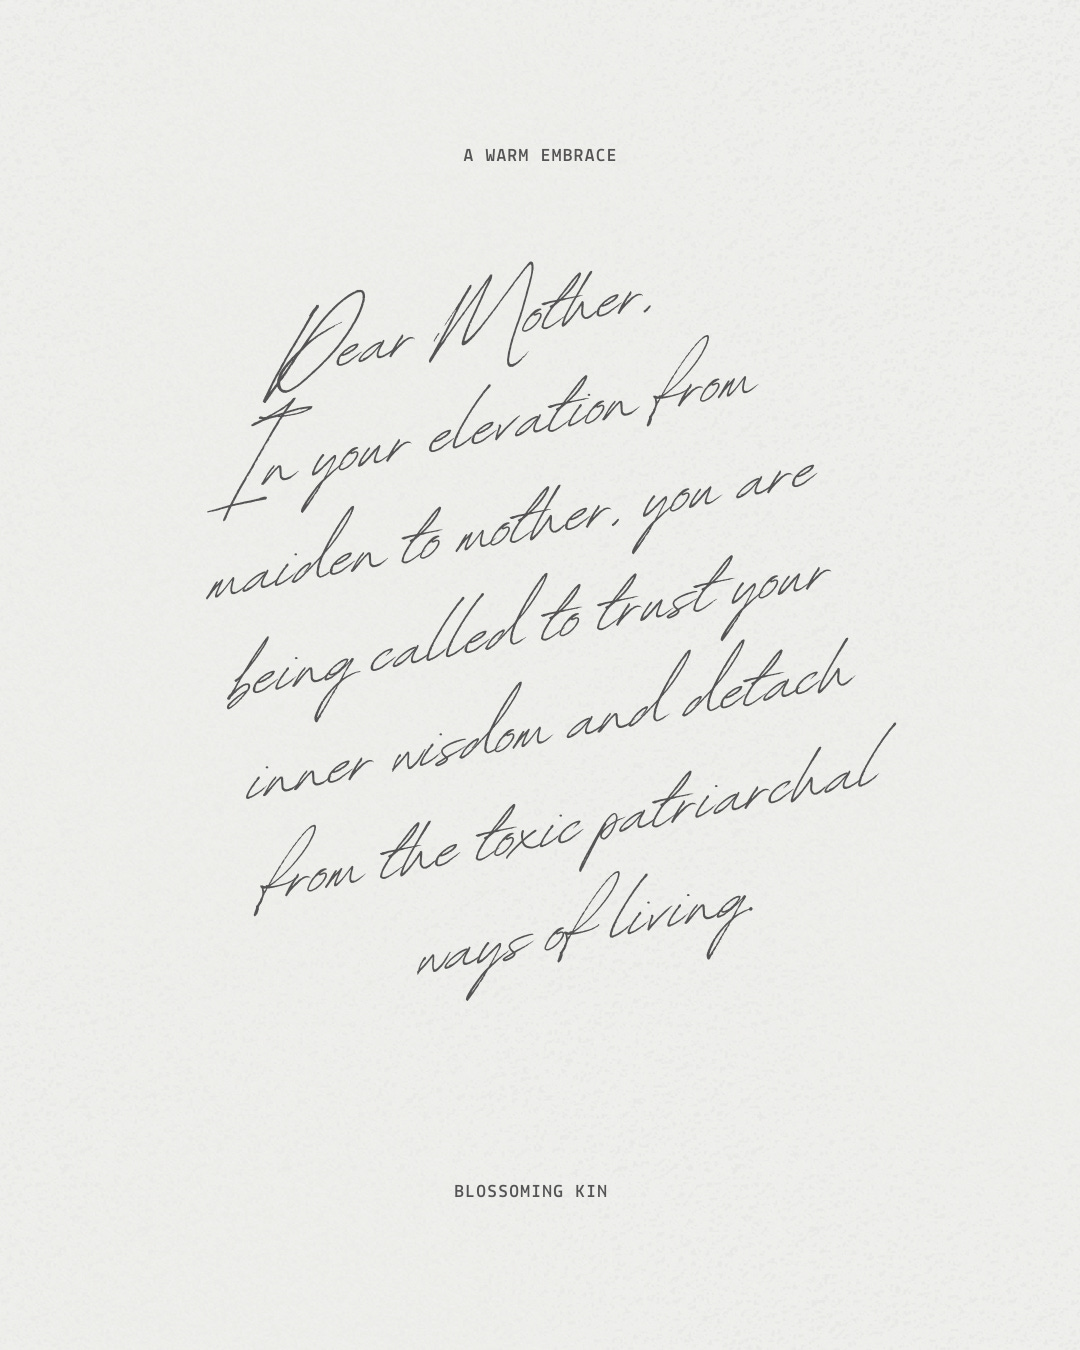 A WARM EMBRACE
Dear Mother,
In your elevation from
maiden to mother, you are
being called to trust your
inner wisdom and detach
from the toxic patriarchal
ways of living.
BLOSSOMING KIN